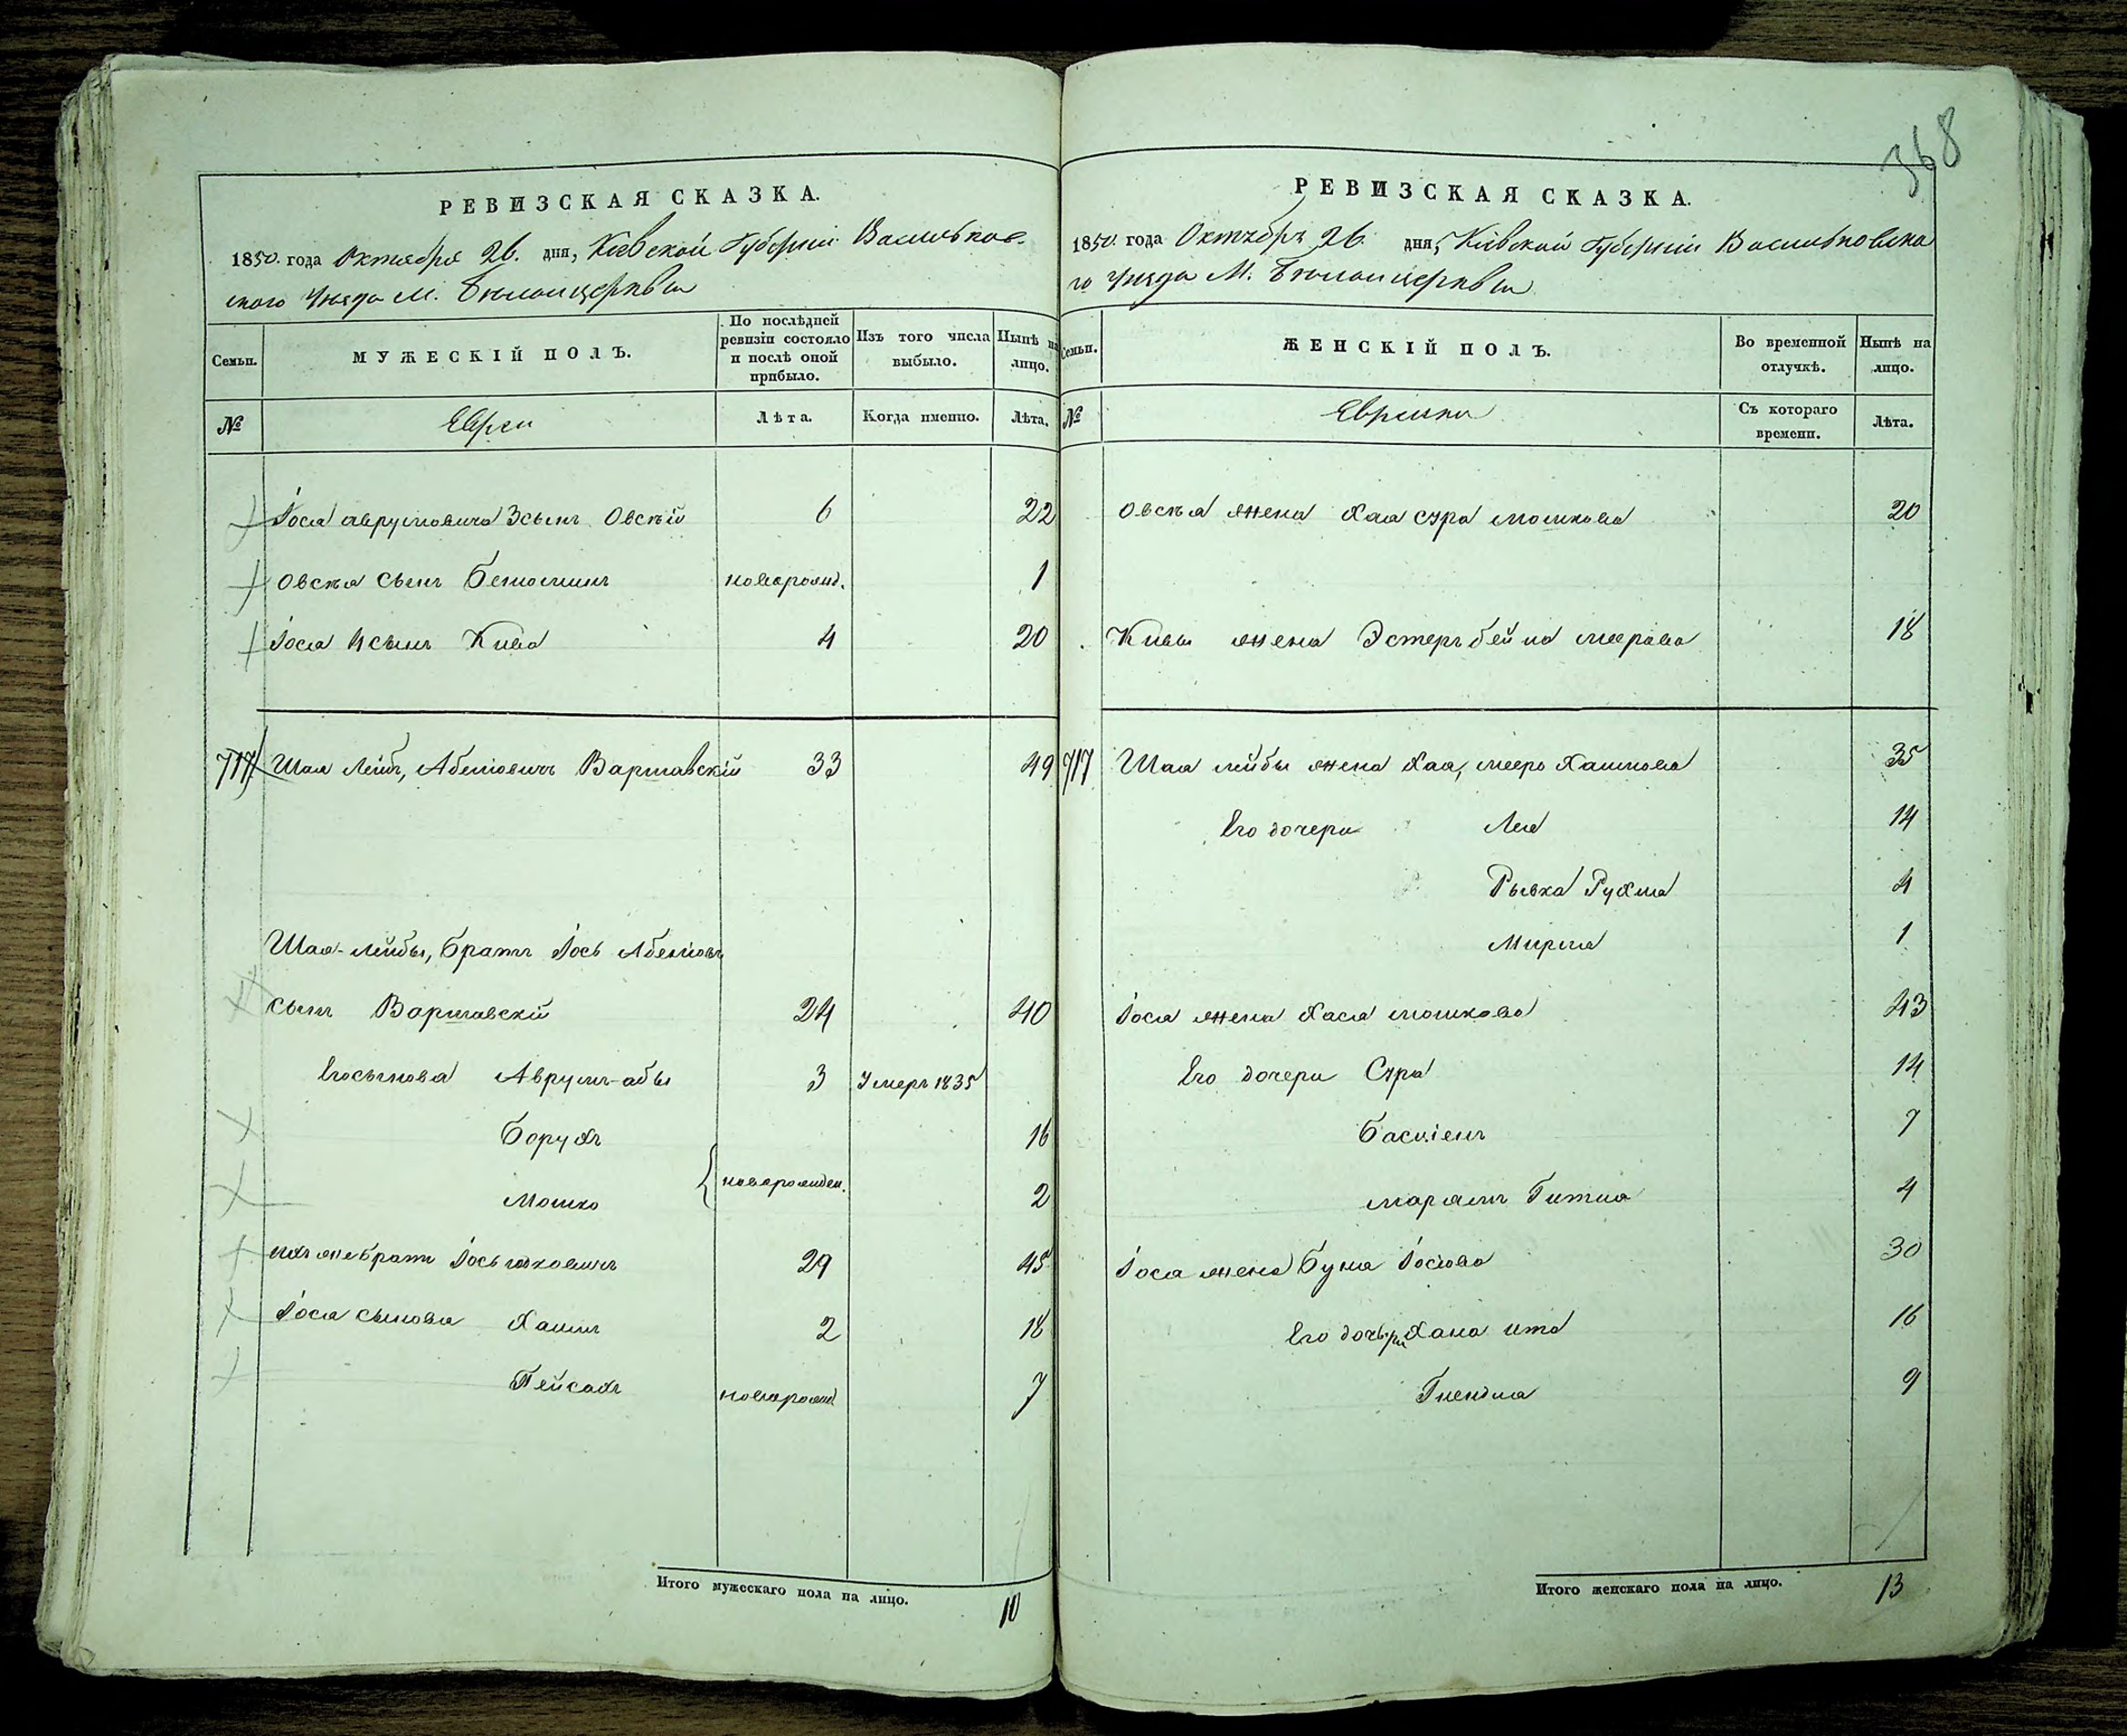 368
РЕВИЗСКАЯ СКАЗКА.
1850. года Октября 26. дня, Кіевской Губерніи Васильков-
скаго Уѣзда М. Бѣлойцеркви
Семьи.
МУЖЕСКІЙ ПОЛЪ.
По послѣдней ревизіи состояло и послѣ оной прибыло.
Изъ того числа выбыло.
Нынѣ на лицо.
№
Евреи
Лѣта.
Когда именно.
Лѣта.
Іося Аврумовича 3 сынъ Овсѣй 6 22
Овсѣя сынъ Беніоминъ новорожд. 1
Іося 4 сынъ Кива 4 20
717 Шая Лейбъ, Абеліовичъ Варшавскій 33 49
Шая-Лейбы, братъ Іось Абеліовъ
сынъ Варшавскій 24 40
Его сынова Аврумъ-абы 3 Умеръ 1835
Борухъ 16
новорожден.
Мошко 2
ихъ же братъ Іось 29 45
Іося сынова Хаимъ 2 18
Пейсахъ новорожд 7
Итого мужескаго пола на лицо. 10
РЕВИЗСКАЯ СКАЗКА.
1850. года Октября 26. дня, Кіевской Губерніи Васильковска
го Уѣзда М. Бѣлойцеркви
Семьи.
ЖЕНСКІЙ ПОЛЪ.
Во временной отлучкѣ.
Нынѣ на лицо.
№
Еврейки
Съ котораго времени.
Лѣта.
Овсѣя жена Хая сура мошкова 20
Кивы жена Эстеръ бейла меерова 18
717 Шая лейбы жена Хая, Хаимова 35
Его дочери Лея 14
Рывка Рухля 4
Мирля 1
Іося жена Хася мошкова 43
Его дочери Сура 14
Басшіемъ 7
марямъ Гитля 4
Іося жена Буня Іосіова 30
Его дочьри Хана ита 16
Гнендля 9
Итого женскаго пола на лицо. 13